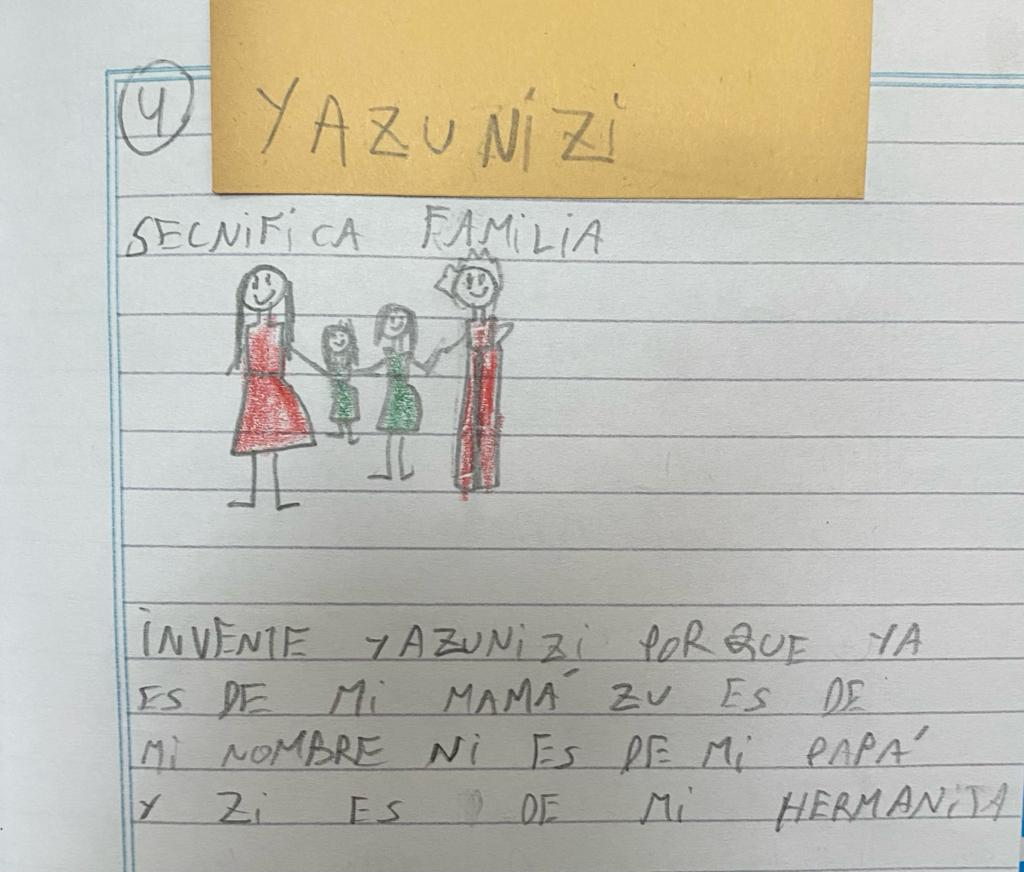 4
YAZUNIZI
SECNIFICA FAMILIA
INVENTE YAZUNIZI POR QUE YA
ES DE MI MAMÁ ZU ES DE
MI NOMBRE NI ES DE MI PAPÁ
Y ZI ES DE MI HERMANITA